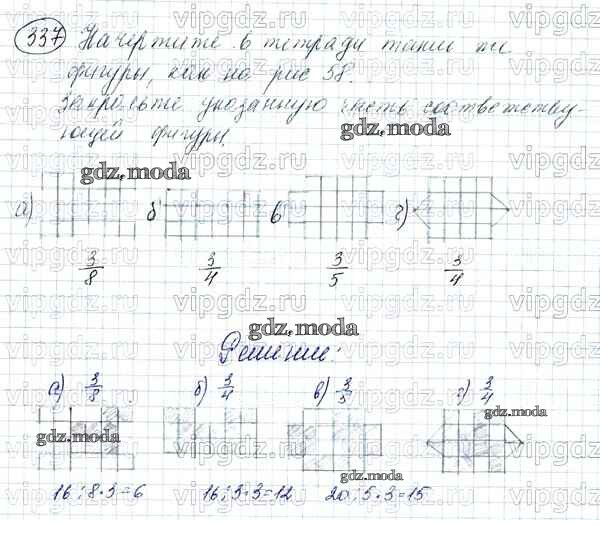 337 Начертите в тетради такие же
фигуры, как на рис 38.
Закрасьте указанную часть соответству-
ющей фигуры.
gdz.moda
gdz.moda
а) б в г)
3/8 3/4 3/5 3/4
gdz.moda
Решение:
а) 3/8 б) 3/4 в) 3/5 г) 3/4
gdz.moda
gdz.moda
gdz.moda
16:8·3=6 16:3·3=12 20:5·3=15
vipgdz.ru